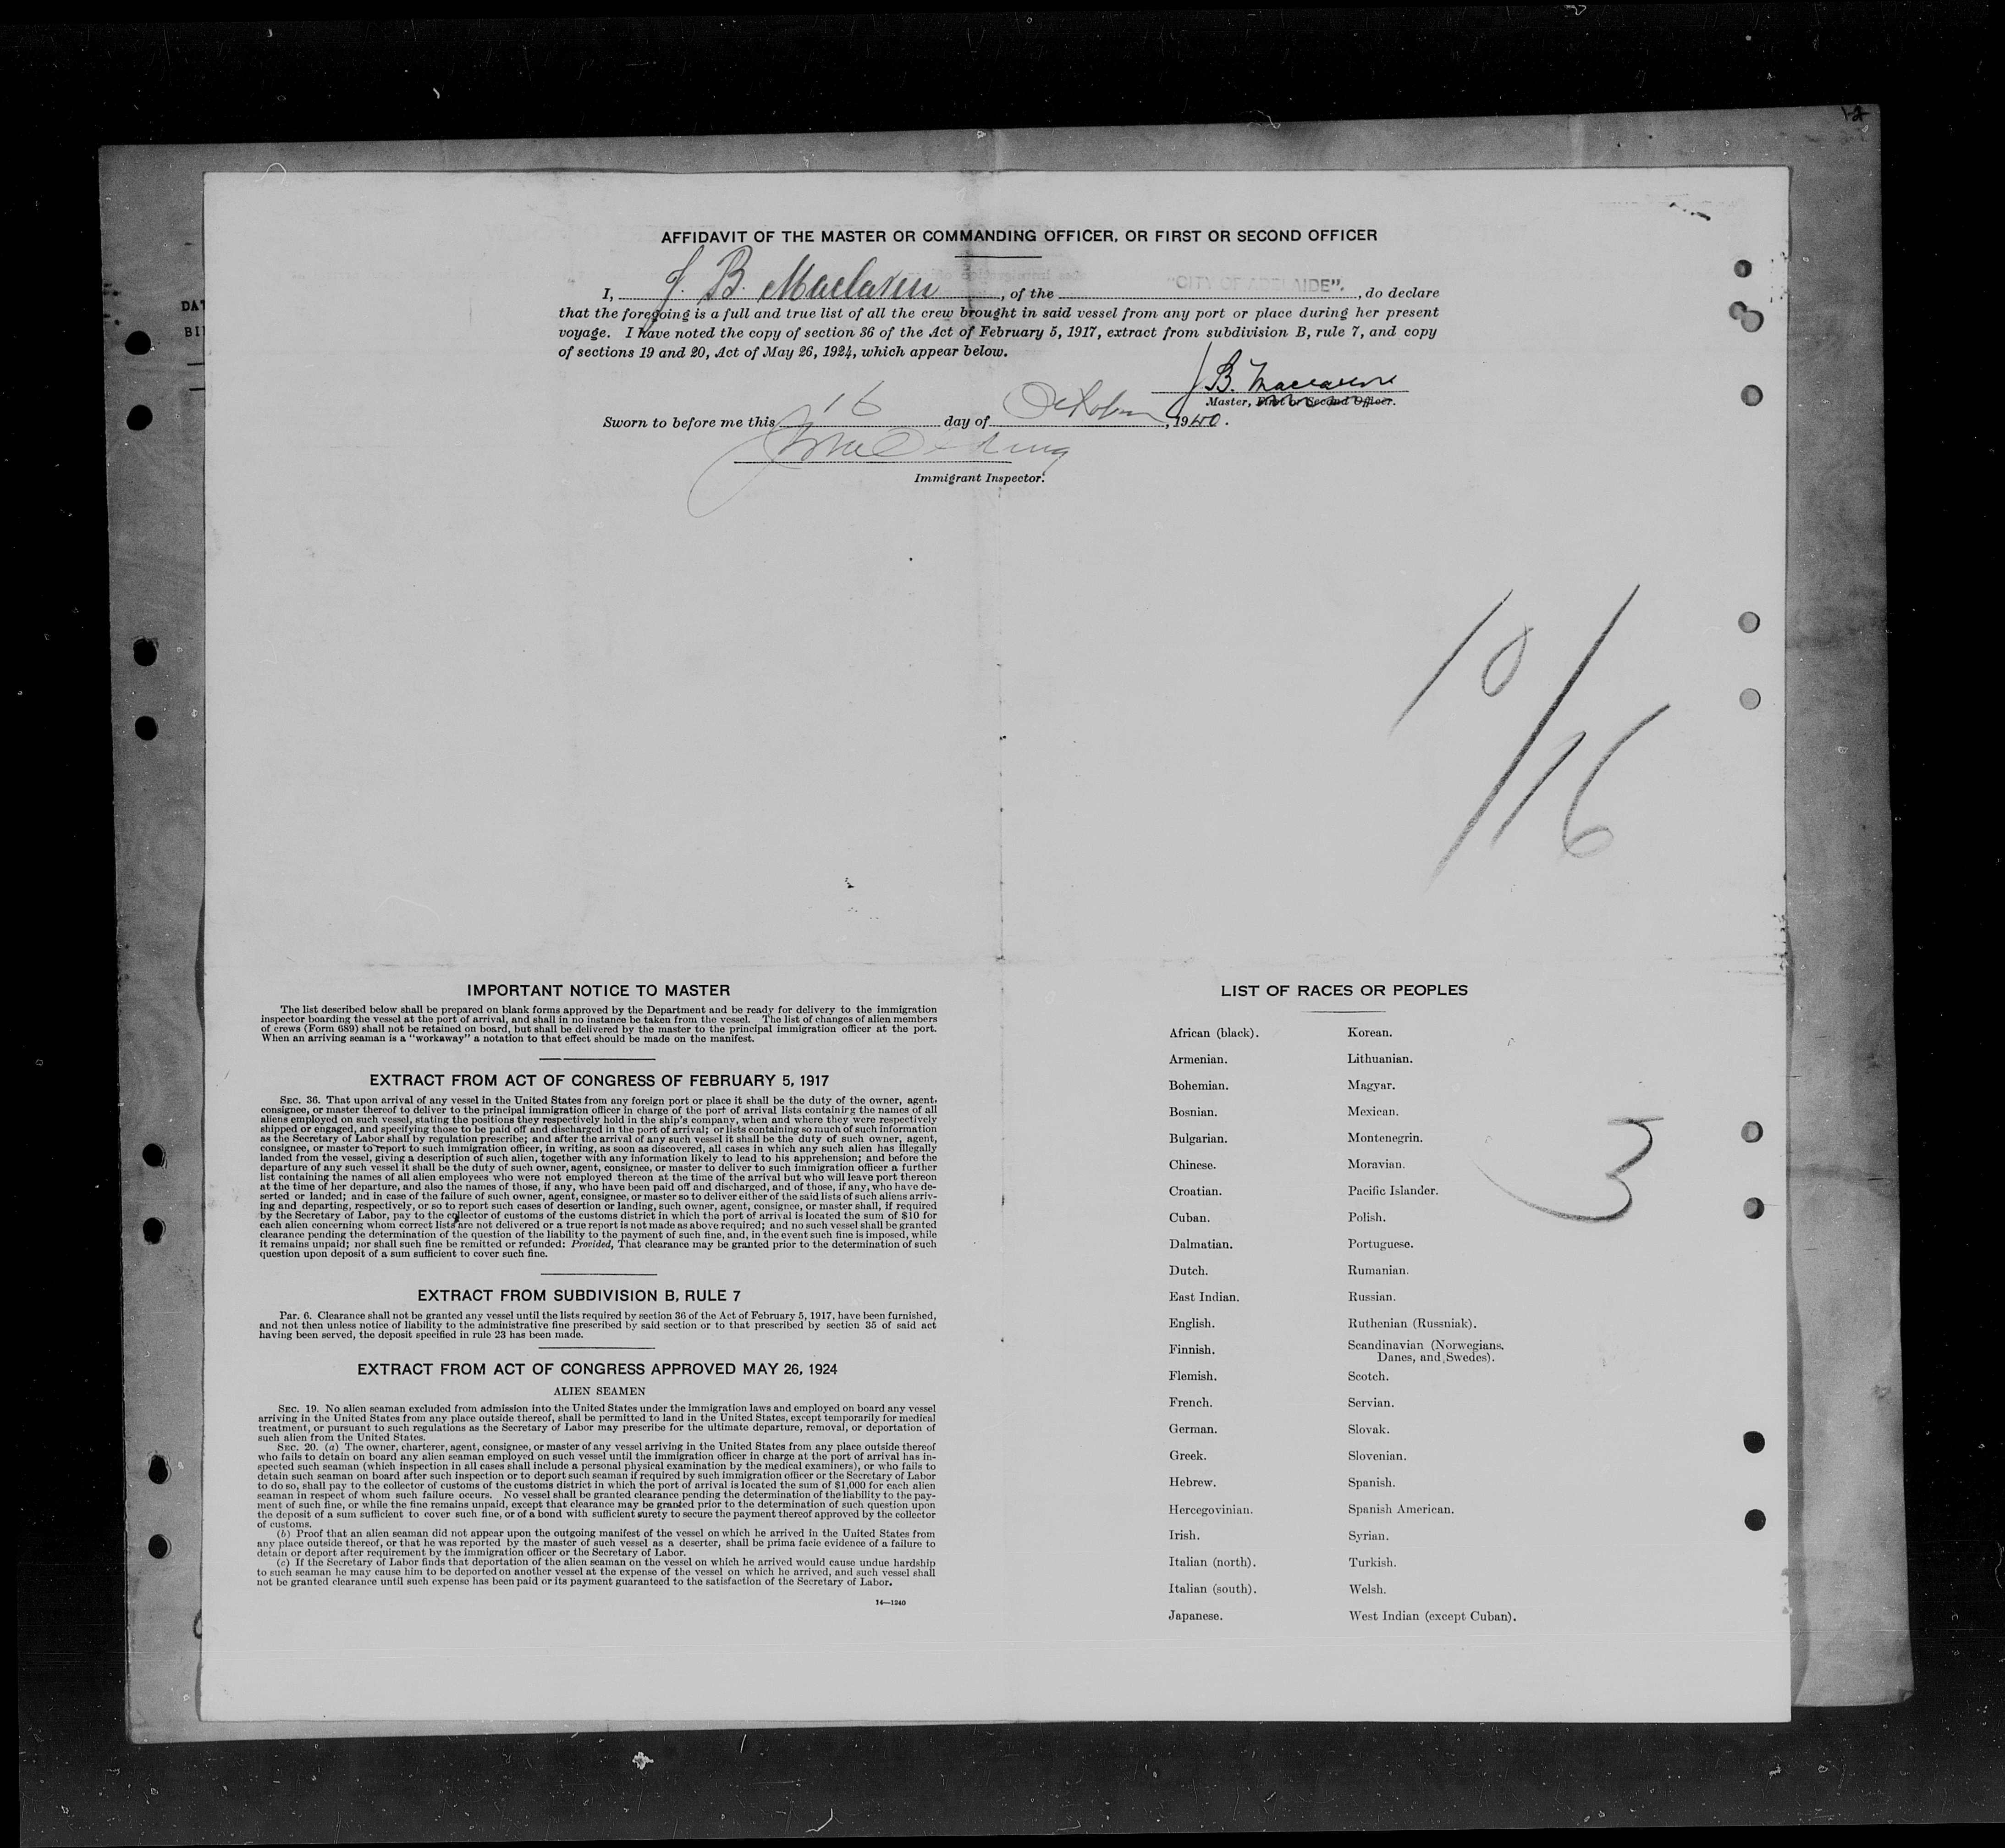 AFFIDAVIT OF THE MASTER OR COMMANDING OFFICER, OR FIRST OR SECOND OFFICER
I, J. B. Maclaren, of the "CITY OF ADELAIDE"., do declare
that the foregoing is a full and true list of all the crew brought in said vessel from any port or place during her present
voyage. I have noted the copy of section 36 of the Act of February 5, 1917, extract from subdivision B, rule 7, and copy
of sections 19 and 20, Act of May 26, 1924, which appear below.
J B. Maclaren
Master, First or Second Officer.
Sworn to before me this 16 day of October, 1940.
Immigrant Inspector.
10/16
IMPORTANT NOTICE TO MASTER
The list described below shall be prepared on blank forms approved by the Department and be ready for delivery to the immigration
inspector boarding the vessel at the port of arrival, and shall in no instance be taken from the vessel. The list of changes of alien members
of crews (Form 689) shall not be retained on board, but shall be delivered by the master to the principal immigration officer at the port.
When an arriving seaman is a "workaway" a notation to that effect should be made on the manifest.
EXTRACT FROM ACT OF CONGRESS OF FEBRUARY 5, 1917
SEC. 36. That upon arrival of any vessel in the United States from any foreign port or place it shall be the duty of the owner, agent,
consignee, or master thereof to deliver to the principal immigration officer in charge of the port of arrival lists containing the names of all
aliens employed on such vessel, stating the positions they respectively hold in the ship's company, when and where they were respectively
shipped or engaged, and specifying those to be paid off and discharged in the port of arrival; or lists containing so much of such information
as the Secretary of Labor shall by regulation prescribe; and after the arrival of any such vessel it shall be the duty of such owner, agent,
consignee, or master to report to such immigration officer, in writing, as soon as discovered, all cases in which any such alien has illegally
landed from the vessel, giving a description of such alien, together with any information likely to lead to his apprehension; and before the
departure of any such vessel it shall be the duty of such owner, agent, consignee, or master to deliver to such immigration officer a further
list containing the names of all alien employees who were not employed thereon at the time of the arrival but who will leave port thereon
at the time of her departure, and also the names of those, if any, who have been paid off and discharged, and of those, if any, who have de-
serted or landed; and in case of the failure of such owner, agent, consignee, or master so to deliver either of the said lists of such aliens arriv-
ing and departing, respectively, or so to report such cases of desertion or landing, such owner, agent, consignee, or master shall, if required
by the Secretary of Labor, pay to the collector of customs of the customs district in which the port of arrival is located the sum of $10 for
each alien concerning whom correct lists are not delivered or a true report is not made as above required; and no such vessel shall be granted
clearance pending the determination of the question of the liability to the payment of such fine, and, in the event such fine is imposed, while
it remains unpaid; nor shall such fine be remitted or refunded: Provided, That clearance may be granted prior to the determination of such
question upon deposit of a sum sufficient to cover such fine.
EXTRACT FROM SUBDIVISION B, RULE 7
Par. 6. Clearance shall not be granted any vessel until the lists required by section 36 of the Act of February 5, 1917, have been furnished,
and not then unless notice of liability to the administrative fine prescribed by said section or to that prescribed by section 35 of said act
having been served, the deposit specified in rule 23 has been made.
EXTRACT FROM ACT OF CONGRESS APPROVED MAY 26, 1924
ALIEN SEAMEN
SEC. 19. No alien seaman excluded from admission into the United States under the immigration laws and employed on board any vessel
arriving in the United States from any place outside thereof, shall be permitted to land in the United States, except temporarily for medical
treatment, or pursuant to such regulations as the Secretary of Labor may prescribe for the ultimate departure, removal, or deportation of
such alien from the United States.
SEC. 20. (a) The owner, charterer, agent, consignee, or master of any vessel arriving in the United States from any place outside thereof
who fails to detain on board any alien seaman employed on such vessel until the immigration officer in charge at the port of arrival has in-
spected such seaman (which inspection in all cases shall include a personal physical examination by the medical examiners), or who fails to
detain such seaman on board after such inspection or to deport such seaman if required by such immigration officer or the Secretary of Labor
to do so, shall pay to the collector of customs of the customs district in which the port of arrival is located the sum of $1,000 for each alien
seaman in respect of whom such failure occurs. No vessel shall be granted clearance pending the determination of the liability to the pay-
ment of such fine, or while the fine remains unpaid, except that clearance may be granted prior to the determination of such question upon
the deposit of a sum sufficient to cover such fine, or of a bond with sufficient surety to secure the payment thereof approved by the collector
of customs.
(b) Proof that an alien seaman did not appear upon the outgoing manifest of the vessel on which he arrived in the United States from
any place outside thereof, or that he was reported by the master of such vessel as a deserter, shall be prima facie evidence of a failure to
detain or deport after requirement by the immigration officer or the Secretary of Labor.
(c) If the Secretary of Labor finds that deportation of the alien seaman on the vessel on which he arrived would cause undue hardship
to such seaman he may cause him to be deported on another vessel at the expense of the vessel on which he arrived, and such vessel shall
not be granted clearance until such expense has been paid or its payment guaranteed to the satisfaction of the Secretary of Labor.
14—1240
LIST OF RACES OR PEOPLES
African (black).
Armenian.
Bohemian.
Bosnian.
Bulgarian.
Chinese.
Croatian.
Cuban.
Dalmatian.
Dutch.
East Indian.
English.
Finnish.
Flemish.
French.
German.
Greek.
Hebrew.
Hercegovinian.
Irish.
Italian (north).
Italian (south).
Japanese.
Korean.
Lithuanian.
Magyar.
Mexican.
Montenegrin.
Moravian.
Pacific Islander.
Polish.
Portuguese.
Rumanian.
Russian.
Ruthenian (Russniak).
Scandinavian (Norwegians,
Danes, and Swedes).
Scotch.
Servian.
Slovak.
Slovenian.
Spanish.
Spanish American.
Syrian.
Turkish.
Welsh.
West Indian (except Cuban).
3
DAT
BI